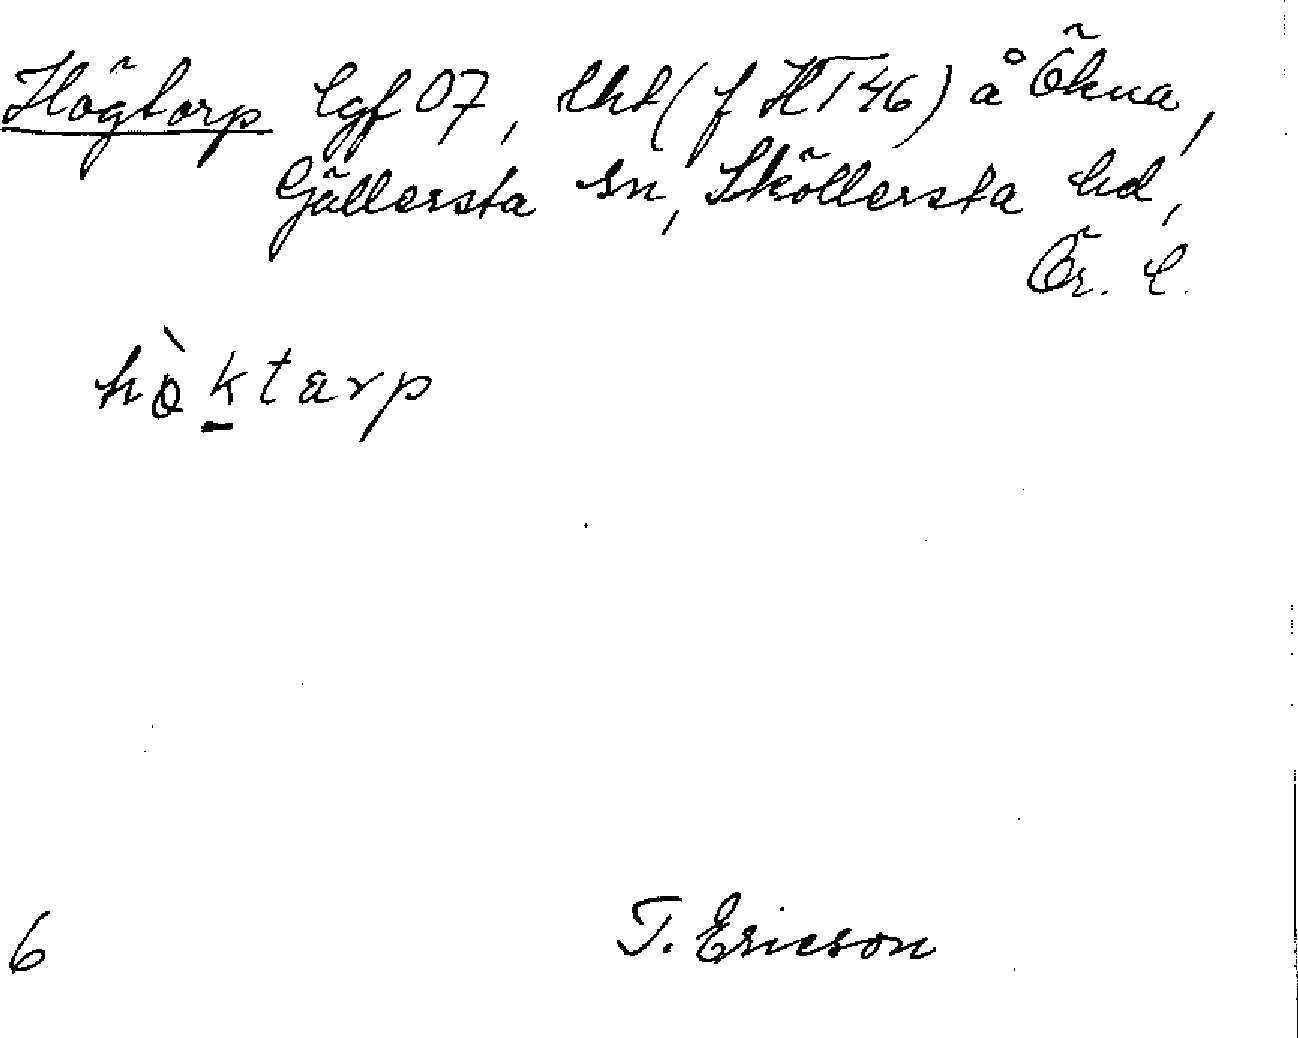 Högtorp lgf 07, lht (f HT 46) å Ökna,
Gällersta sn, Sköllersta hd,
Ör. l.
hö̀ktarp
6
T. Ericson